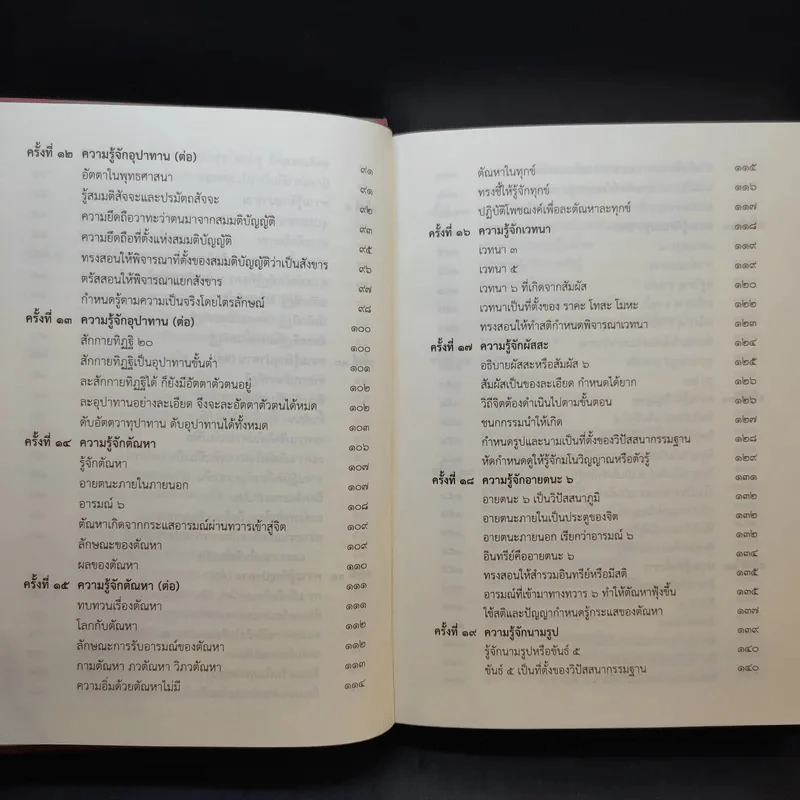 ครั้งที่ ๑๒ ความรู้จักอุปาทาน (ต่อ) ๙๑
อัตตาในพุทธศาสนา ๙๑
รู้สมมติสัจจะและปรมัตถสัจจะ ๙๒
ความยึดถือวาทะว่าตนมาจากสมมติบัญญัติ ๙๓
ความยึดถือที่ตั้งแห่งสมมติบัญญัติ ๙๕
ทรงสอนให้พิจารณาที่ตั้งของสมมติบัญญัติว่าเป็นสังขาร ๙๖
ตรัสสอนให้พิจารณาแยกสังขาร ๙๗
กำหนดรู้ตามความเป็นจริงโดยไตรลักษณ์ ๙๘
ครั้งที่ ๑๓ ความรู้จักอุปาทาน (ต่อ) ๑๐๐
สักกายทิฏฐิ ๒๐ ๑๐๐
สักกายทิฏฐิเป็นอุปาทานขั้นต่ำ ๑๐๑
ละสักกายทิฏฐิได้ ก็ยังมีอัตตาตัวตนอยู่ ๑๐๒
ละอุปาทานอย่างละเอียด จึงจะละอัตตาตัวตนได้หมด ๑๐๒
ดับอัตตวาทุปาทาน ดับอุปาทานได้ทั้งหมด ๑๐๓
ครั้งที่ ๑๔ ความรู้จักตัณหา ๑๐๖
รู้จักตัณหา ๑๐๗
อายตนะภายในภายนอก ๑๐๗
อารมณ์ ๖ ๑๐๘
ตัณหาเกิดจากกระแสอารมณ์ผ่านทวารเข้าสู่จิต ๑๐๙
ลักษณะของตัณหา ๑๐๙
ผลของตัณหา ๑๑๐
ครั้งที่ ๑๕ ความรู้จักตัณหา (ต่อ) ๑๑๑
ทบทวนเรื่องตัณหา ๑๑๑
โลกกับตัณหา ๑๑๒
ลักษณะการรับอารมณ์ของตัณหา ๑๑๒
กามตัณหา ภวตัณหา วิภวตัณหา ๑๑๓
ความอิ่มด้วยตัณหาไม่มี ๑๑๔
ตัณหาในทุกข์ ๑๑๕
ทรงชี้ให้รู้จักทุกข์ ๑๑๖
ปฏิบัติโพชฌงค์เพื่อละตัณหาละทุกข์ ๑๑๗
ครั้งที่ ๑๖ ความรู้จักเวทนา ๑๑๘
เวทนา ๓ ๑๑๙
เวทนา ๕ ๑๑๙
เวทนา ๖ ที่เกิดจากสัมผัส ๑๒๐
เวทนาเป็นที่ตั้งของ ราคะ โทสะ โมหะ ๑๒๒
ทรงสอนให้ทำสติกำหนดพิจารณาเวทนา ๑๒๓
ครั้งที่ ๑๗ ความรู้จักผัสสะ ๑๒๔
อธิบายผัสสะหรือสัมผัส ๖ ๑๒๕
สัมผัสเป็นของละเอียด กำหนดได้ยาก ๑๒๖
วิถีจิตต้องดำเนินไปตามขั้นตอน ๑๒๖
ชนกกรรมนำให้เกิด ๑๒๗
กำหนดรูปและนามเป็นที่ตั้งของวิปัสสนากรรมฐาน ๑๒๘
หัดกำหนดดูให้รู้จักมโนวิญญาณหรือตัวรู้ ๑๒๙
ครั้งที่ ๑๘ ความรู้จักอายตนะ ๖ ๑๓๑
อายตนะ ๖ เป็นวิปัสสนาภูมิ ๑๓๒
อายตนะภายในเป็นประตูของจิต ๑๓๒
อายตนะภายนอก เรียกว่าอารมณ์ ๖ ๑๓๒
อินทรีย์คืออายตนะ ๖ ๑๓๔
ทรงสอนให้สำรวมอินทรีย์หรือมีสติ ๑๓๕
อารมณ์ที่เข้ามาทางทวาร ๖ ทำให้ตัณหาฟุ้งขึ้น ๑๓๕
ใช้สติและปัญญากำหนดรู้กระแสของตัณหา ๑๓๗
ครั้งที่ ๑๙ ความรู้จักนามรูป ๑๓๙
รู้จักนามรูปหรือขันธ์ ๕ ๑๔๐
ขันธ์ ๕ เป็นที่ตั้งของวิปัสสนากรรมฐาน ๑๔๐